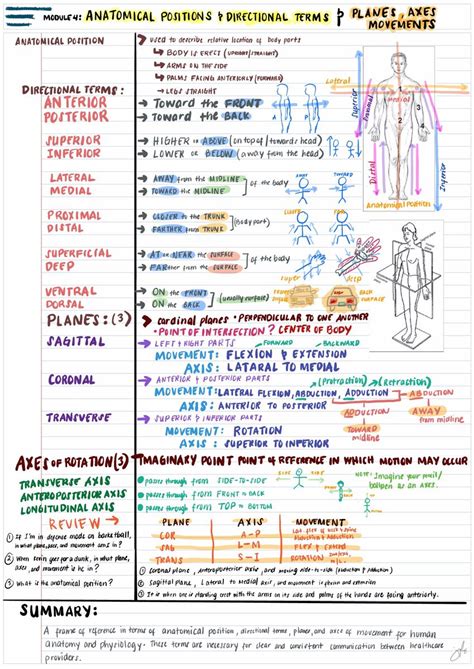 MODULE 4: ANATOMICAL POSITIONS & DIRECTIONAL TERMS & PLANES, AXES
MOVEMENTS
ANATOMICAL POSITION
used to describe relative location of body parts
BODY IS ERECT (UPRIGHT/STRAIGHT)
ARMS ON THE SIDE
PALMS FACING ANTERIORLY (FORWARD)
LEGS STRAIGHT
DIRECTIONAL TERMS:
ANTERIOR → Toward the FRONT
POSTERIOR → Toward the BACK
SUPERIOR → HIGHER or ABOVE (on top of / towards head)
INFERIOR → LOWER or BELOW (away from the head)
LATERAL → AWAY from the MIDLINE
MEDIAL → TOWARD the MIDLINE
of the body
AWAY TOWARD
PROXIMAL → CLOSER to the TRUNK
DISTAL → FARTHER from TRUNK
(Body part)
SUPERFICIAL → AT or NEAR the SURFACE
DEEP → FARther from the SURFACE
of the body
super DEEP
VENTRAL → ON the FRONT
DORSAL → ON the BACK
(usually surface)
Superior
Lateral
Medial
Proximal
Distal
Inferior
Anatomical Position
1
2
3
4
PLANES: (3)
cardinal planes • PERPENDICULAR TO ONE ANOTHER
• POINT OF INTERSECTION? CENTER OF BODY
SAGITTAL
LEFT & RIGHT PARTS FORWARD BACKWARD
MOVEMENT: FLEXION & EXTENSION
AXIS: LATARAL TO MEDIAL
CORONAL
ANTERIOR & POSTERIOR PARTS (Protraction) (Retraction)
MOVEMENT: LATERAL FLEXION, ABDUCTION, ADDUCTION
ABDUCTION
AXIS: ANTERIOR TO POSTERIOR
ADDUCTION
AWAY
from midline
TRANSVERSE
SUPERIOR & INFERIOR PARTS
MOVEMENT: ROTATION
TOWARD
midline
AXIS: SUPERIOR TO INFERIOR
AXES OF ROTATION (3)
IMAGINARY POINT POINT OF REFERENCE IN WHICH MOTION MAY OCCUR
TRANSVERSE AXIS • passes through from SIDE-TO-SIDE
ANTEROPOSTERIOR AXIS • passes through from FRONT to BACK
LONGITUDINAL AXIS • passes through from TOP to BOTTOM
SIDE AXES
NOTE: Imagine your pencil/
ballpen as an axes.
REVIEW
PLANE AXIS MOVEMENT
COR A-P
SAG L-M FLEX & EXTEND
TRANS S-I ROTATION
① If I'm in defense mode on basketball,
in what plane, axes, and movement am I in?
② When Kevin goes for a dunk, in what plane,
axes, and movement is he in?
③ What is the anatomical position?
① coronal plane, anteroposterior axis, and moving side-to-side (Abduction & Adduction)
② sagittal plane, Lateral to medial axis, and movement is flexion and extension
③ It is when one is standing erect with the arms on its side and palms of the hands are facing anteriorly.
SUMMARY:
A frame of reference in terms of anatomical position, directional terms, planes, and axes of movement for human
anatomy and physiology. These terms are necessary for clear and consistent communication between healthcare
providers.